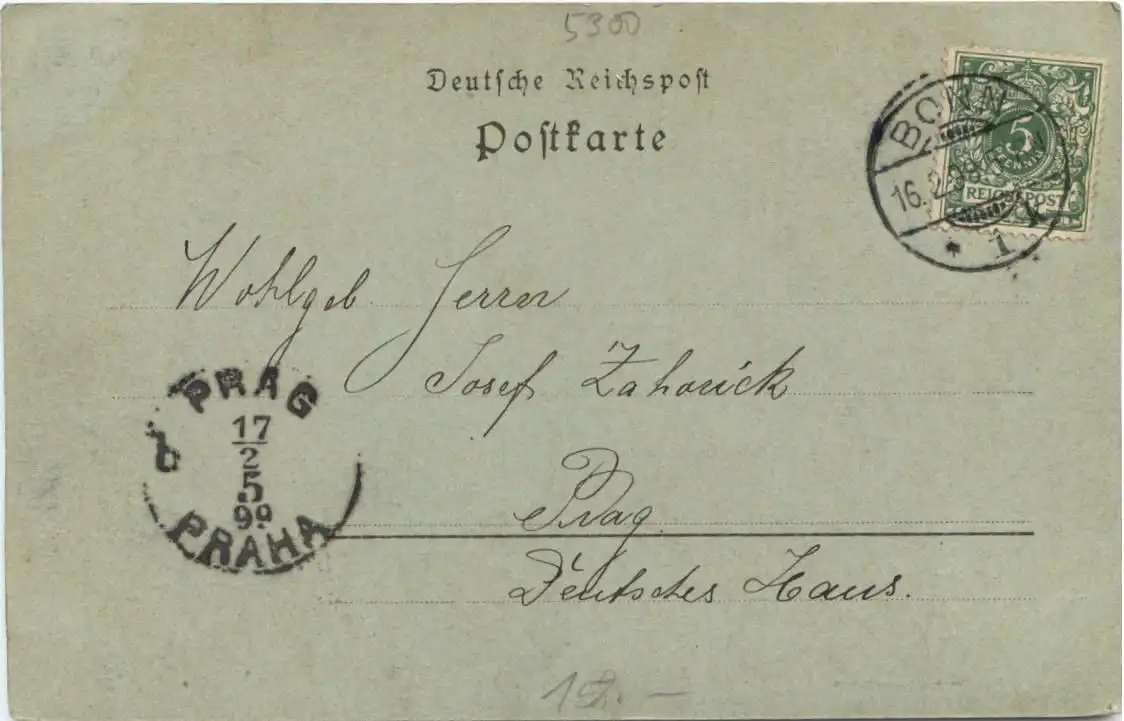 5300
Deutsche Reichspost
Postkarte
BONN
16.2.99
* 1 k
5
PFENNIG
REICHSPOST
Wohlgeb Herrn
Josef Zahorick
Prag
Deutsches Haus.
PRAG
17
2
5
99
b
PRAHA